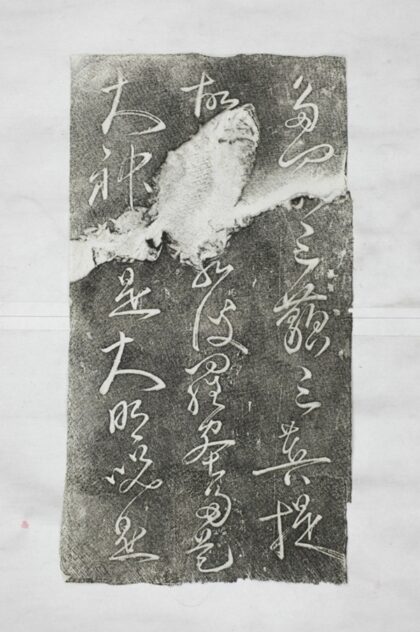 多三藐三菩提
故若波羅蜜多是
大神是大明咒是